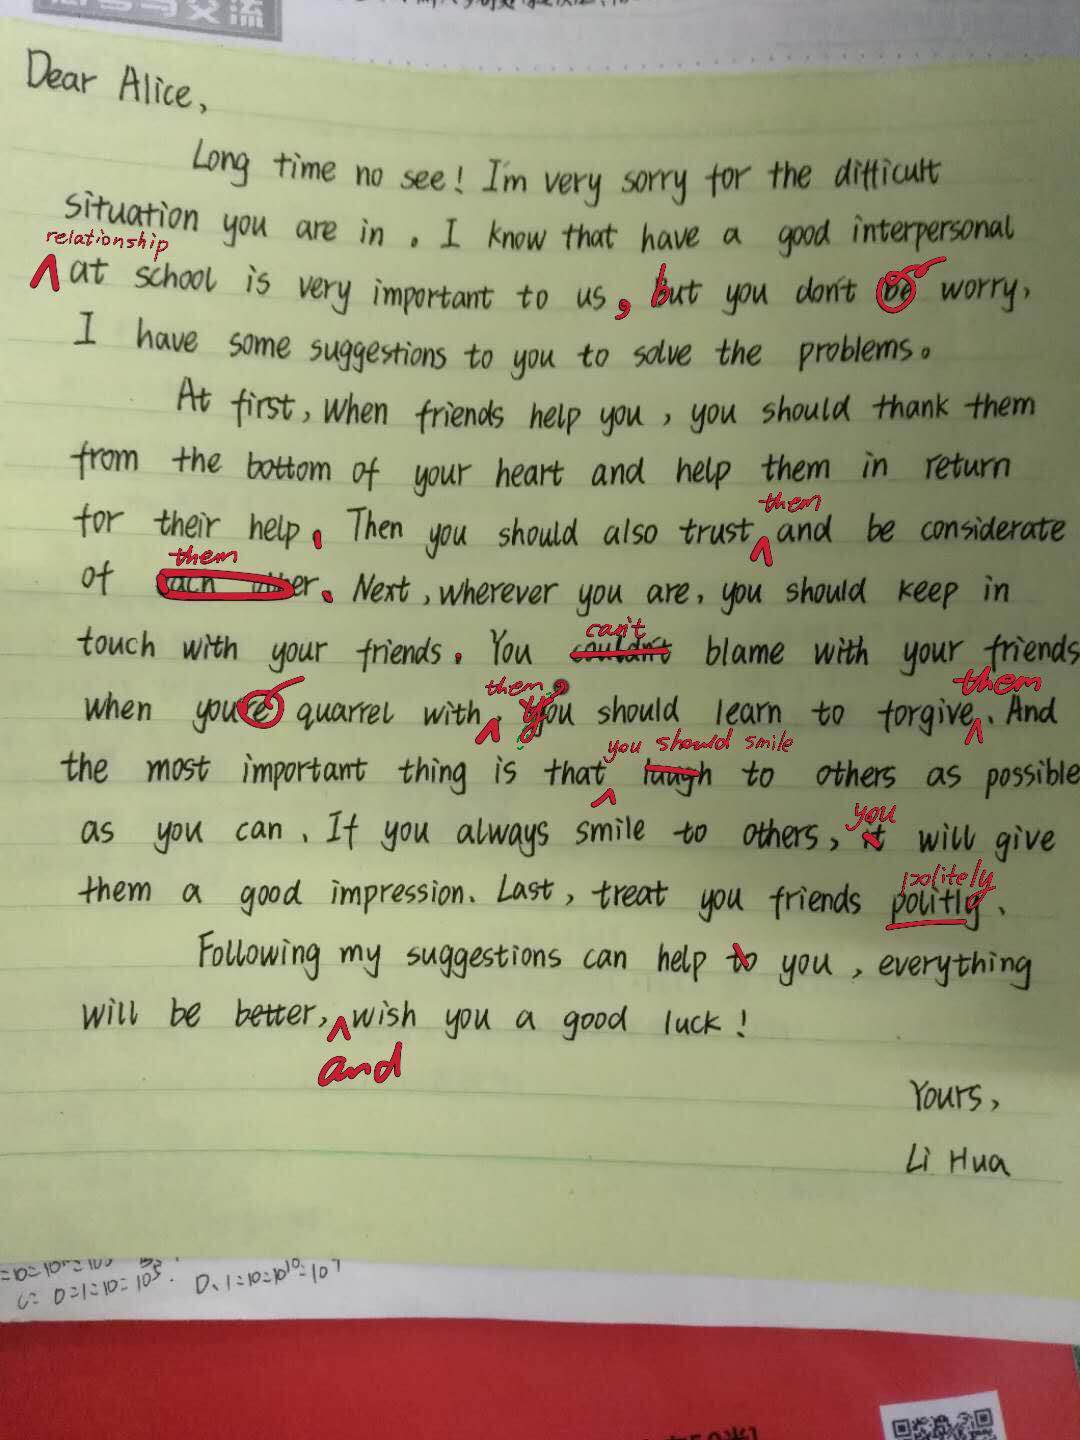 Dear Alice,
Long time no see! I'm very sorry for the difficult
situation you are in. I know that have a good interpersonal
relationship
at school is very important to us, but you don't be worry,
I have some suggestions to you to solve the problems.
At first, when friends help you, you should thank them
from the bottom of your heart and help them in return
them
for their help. Then you should also trust and be considerate
them
of each other. Next, wherever you are, you should keep in
can't
touch with your friends. You couldn't blame with your friends
them
them
when you're quarrel with. you should learn to forgive. And
you should smile
the most important thing is that laugh to others as possible
you
as you can. If you always smile to others, it will give
politely
them a good impression. Last, treat you friends politly.
Following my suggestions can help to you, everything
will be better, wish you a good luck!
and
Yours,
Li Hua